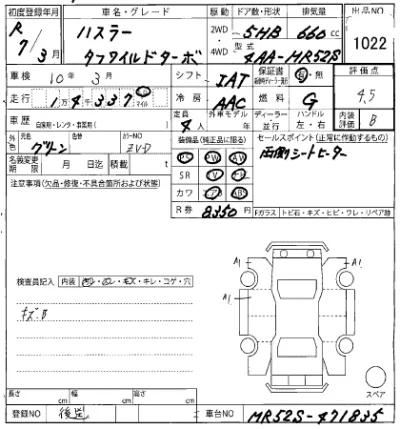 初度登録年月 車名・グレード 駆動 ドア数・形状 排気量 出品NO
R 7/3月 ハスラー 2WD 5HB 660cc 1022
タフワイルドターボ 4WD 型式 4AA-MR52S
車検 10年 3月 シフト IAT 保証書 有・無 評価点
走行 1万4千337 マイル 冷房 AAC 燃料 G 4.5
車歴 自家用・レンタ・事業用( ) 定員 4人 外車モデル 年 ディーラー・並行 ハンドル 左・右 内装評価 B
外色 元色 グリーン 色替 カラーNO ZVD 装備品(純正品に限る) セールスポイント(正常に作動するもの)
名義変更期限 月 日迄 積載 t PS PW AW 両側シートヒーター
注意事項(欠品・修復・不具合箇所および状態) SR
カワ
R券 8350円
Fガラス トビ石・キズ・ヒビ・ワレ・リペア跡
A1 A1
A1
検査員記入 内装 キレ・コゲ・穴
キズ
スペア
長さ cm 幅 cm 高さ cm
登録NO 後送 車台NO MR52S-471835